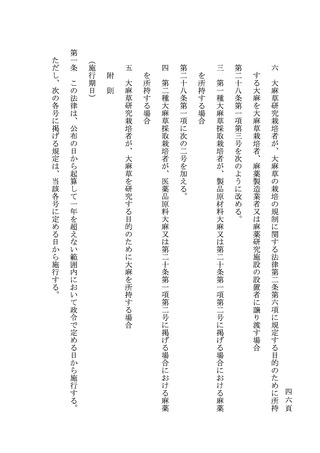 四六頁
六　大麻草研究栽培者が、大麻草の栽培の規制に関する法律第二条第六項に規定する目的のために所持
する大麻を大麻草栽培者、麻薬製造業者又は麻薬研究施設の設置者に譲り渡す場合
第二十八条第一項第三号を次のように改める。
三　第一種大麻草採取栽培者が、製品原材料大麻又は第二十条第一項第二号に掲げる場合における麻薬
を所持する場合
第二十八条第一項に次の二号を加える。
四　第二種大麻草採取栽培者が、医薬品原料大麻又は第二十条第一項第二号に掲げる場合における麻薬
を所持する場合
五　大麻草研究栽培者が、大麻草を研究する目的のために大麻を所持する場合
附　則
（施行期日）
第一条　この法律は、公布の日から起算して一年を超えない範囲内において政令で定める日から施行する。
ただし、次の各号に掲げる規定は、当該各号に定める日から施行する。